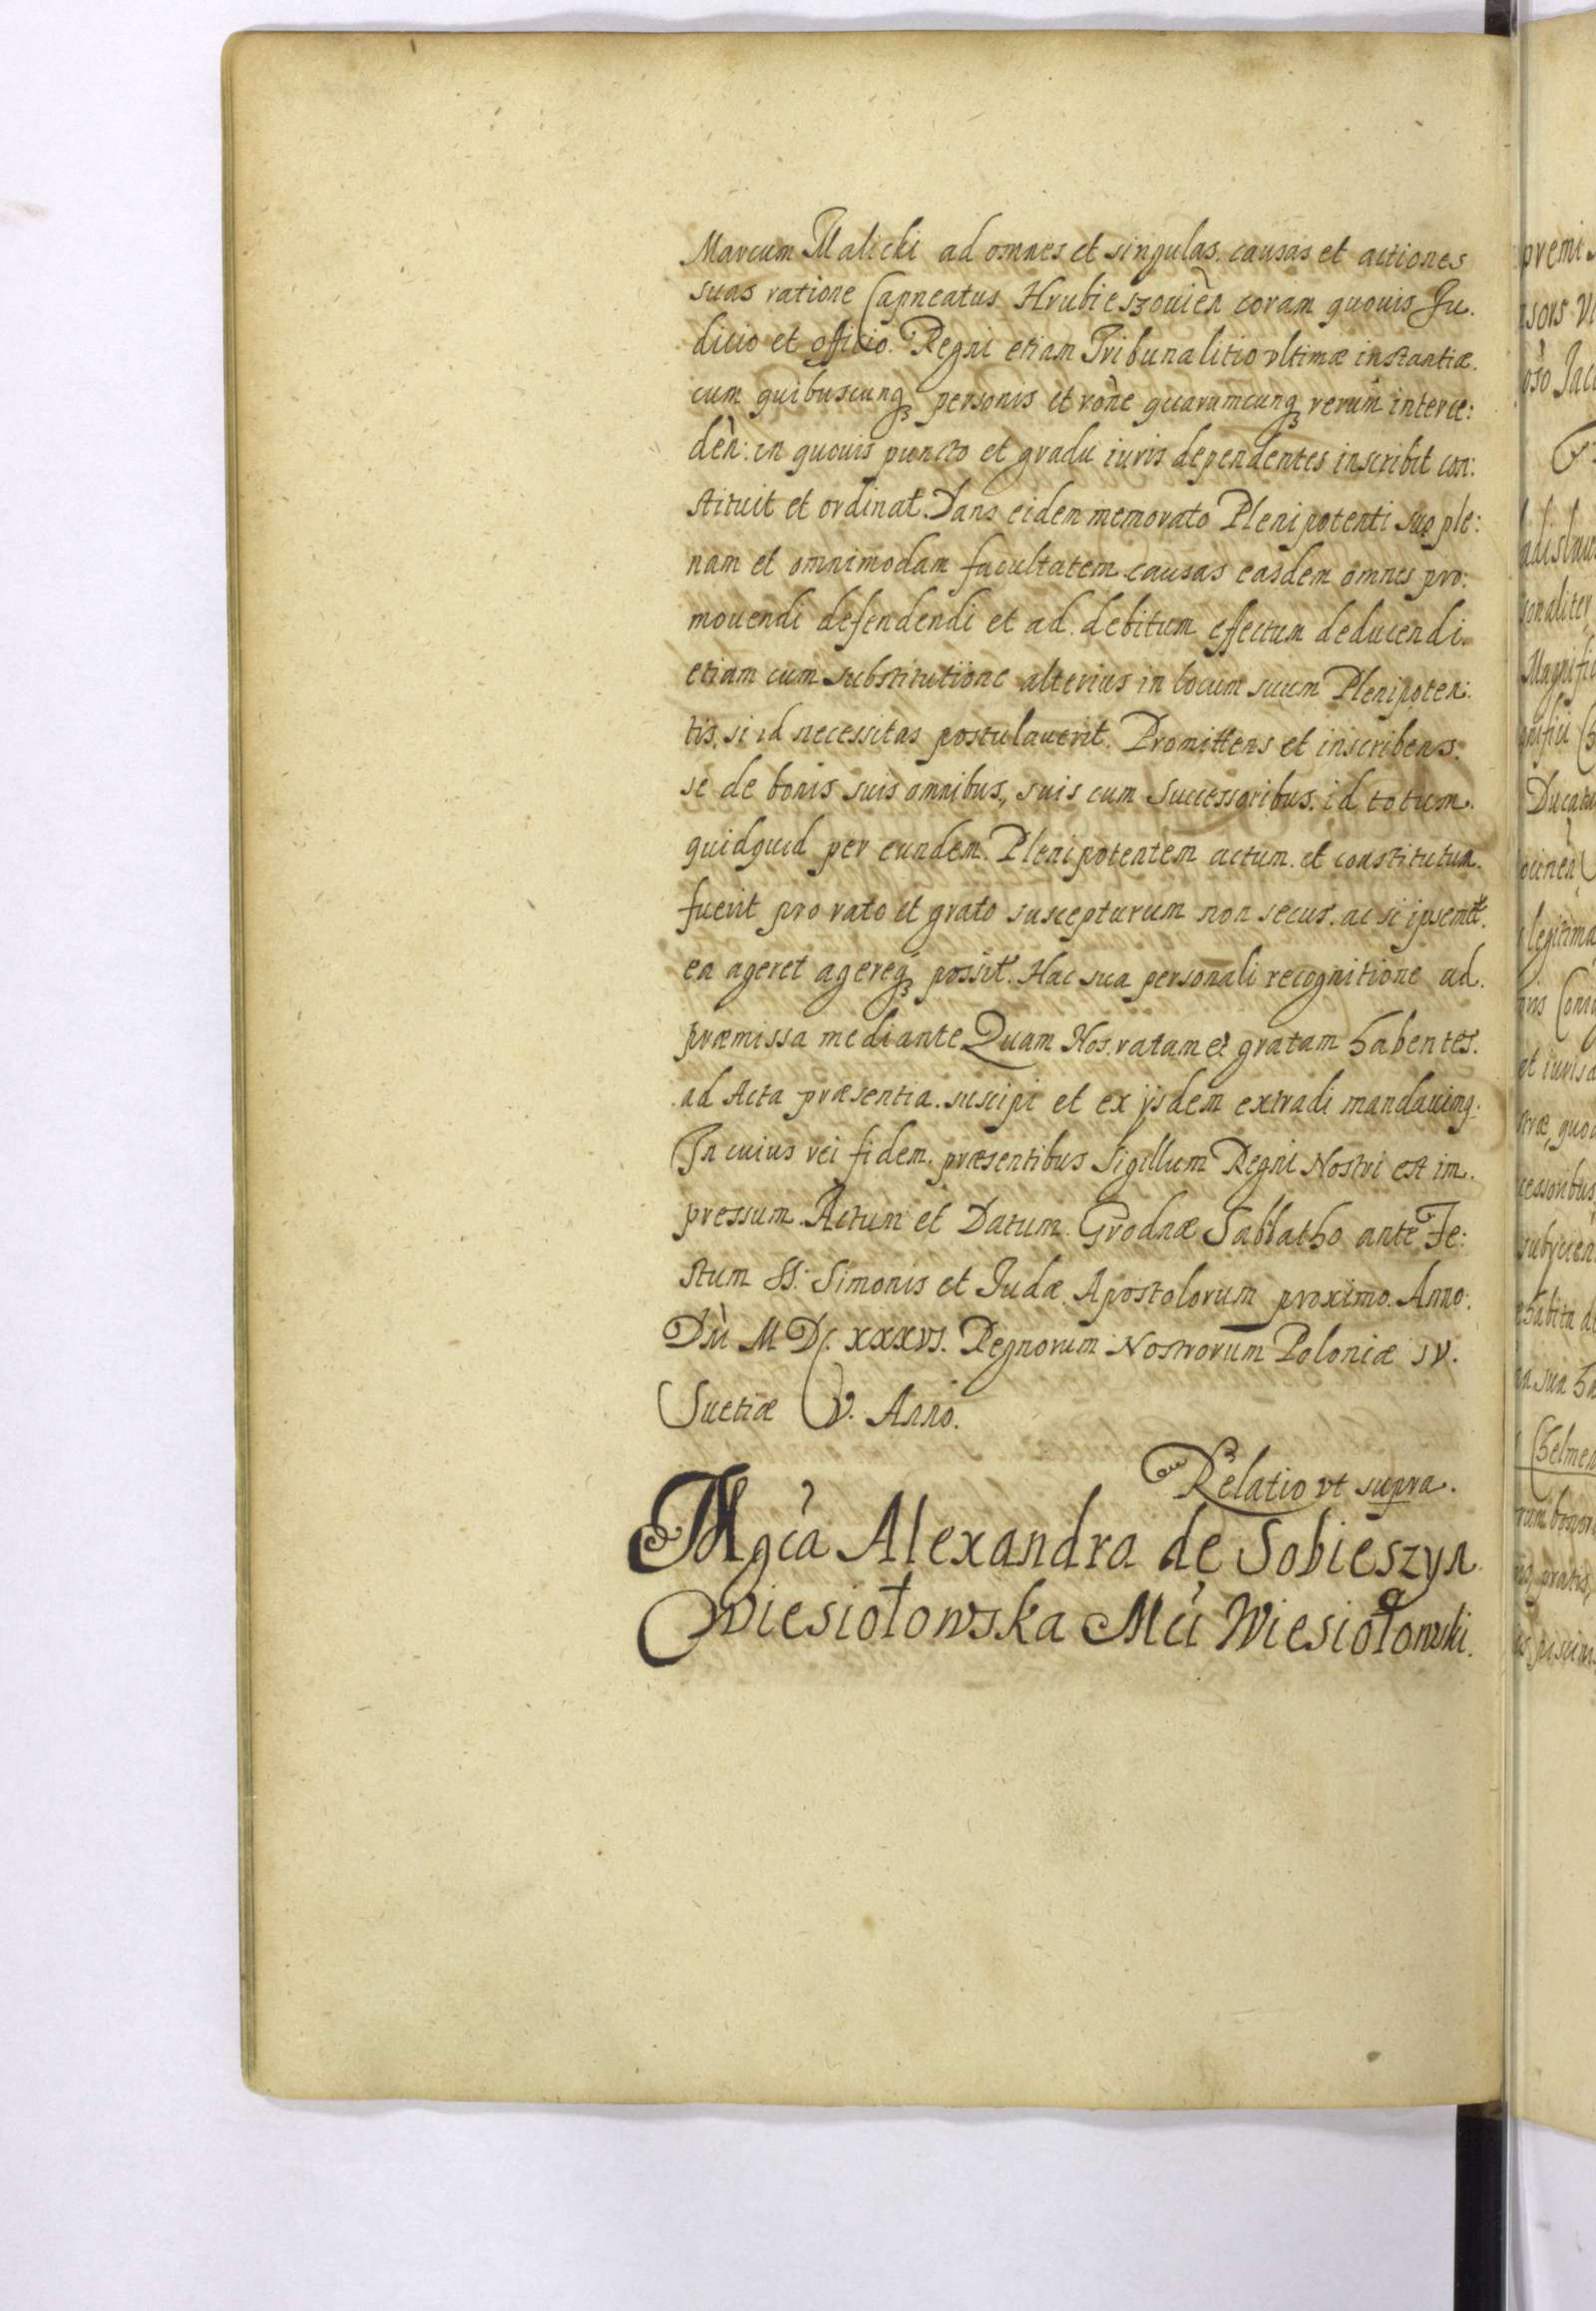 Marcum Malicki ad omnes et singulas. causas et actiones
suas ratione Capneatus Hrubieszouièn coram quouis Ju.
dicio et officio. Regni etiam Tribunalitio vltimæ instantiæ.
cum quibuscunqꝫ personis et rône quarumcunqꝫ rerum interce:
dèn: in quouis puncto et gradu iuris dependentes inscribit con:
stituit et ordinat. Dans eidem memorato Plenipotenti suo ple:
nam et omnimodam facultatem causas easdem omnes pro:
mouendi defendendi et ad debitum effectum deducendi.
etiam cum substitutione alterius in locum suum Plenipoten:
tis, si id necessitas postulauerit. Promittens et inscribens.
se de bonis suis omnibus, suis cum Successoribus. id totum.
quidquid per eundem. Plenipotentem actum et constitutum.
fuerit pro rato et grato suscepturum non secus. ac si ipsemet.
ea ageret agereqꝫ possit. Hac sua personali recognitione ad.
præmissa mediante Quam Nos. ratam et gratam habentes.
ad Acta præsentia. suscipi et ex ijsdem extradi mandauimq.
In cuius rei fidem. præsentibus Sigillum Regni Nostri est im.
pressum. Actum et Datum. Grodnæ Sabbatho ante Fe:
stum SS: Simonis et Judæ. Apostolorum proximo. Anno.
Dni M DC. XXXVI. Regnorum Nostrorum Poloniæ IV.
Suetiæ V. Anno.
Relatio vt supra.
Mgca Alexandra de Sobieszyn
Wiesiołowska Mci Wiesiołowski.
premi
nsors Vi
oso Jac
adislau
sonaliter
Magnifi
gnifici
Ducatu
ouien
legitima
ris Con
at iurisd
stræ, quo
cessoribus
subijcien
habita
na sua ha
Chelmen
rum bonor
pratis,
piscinis